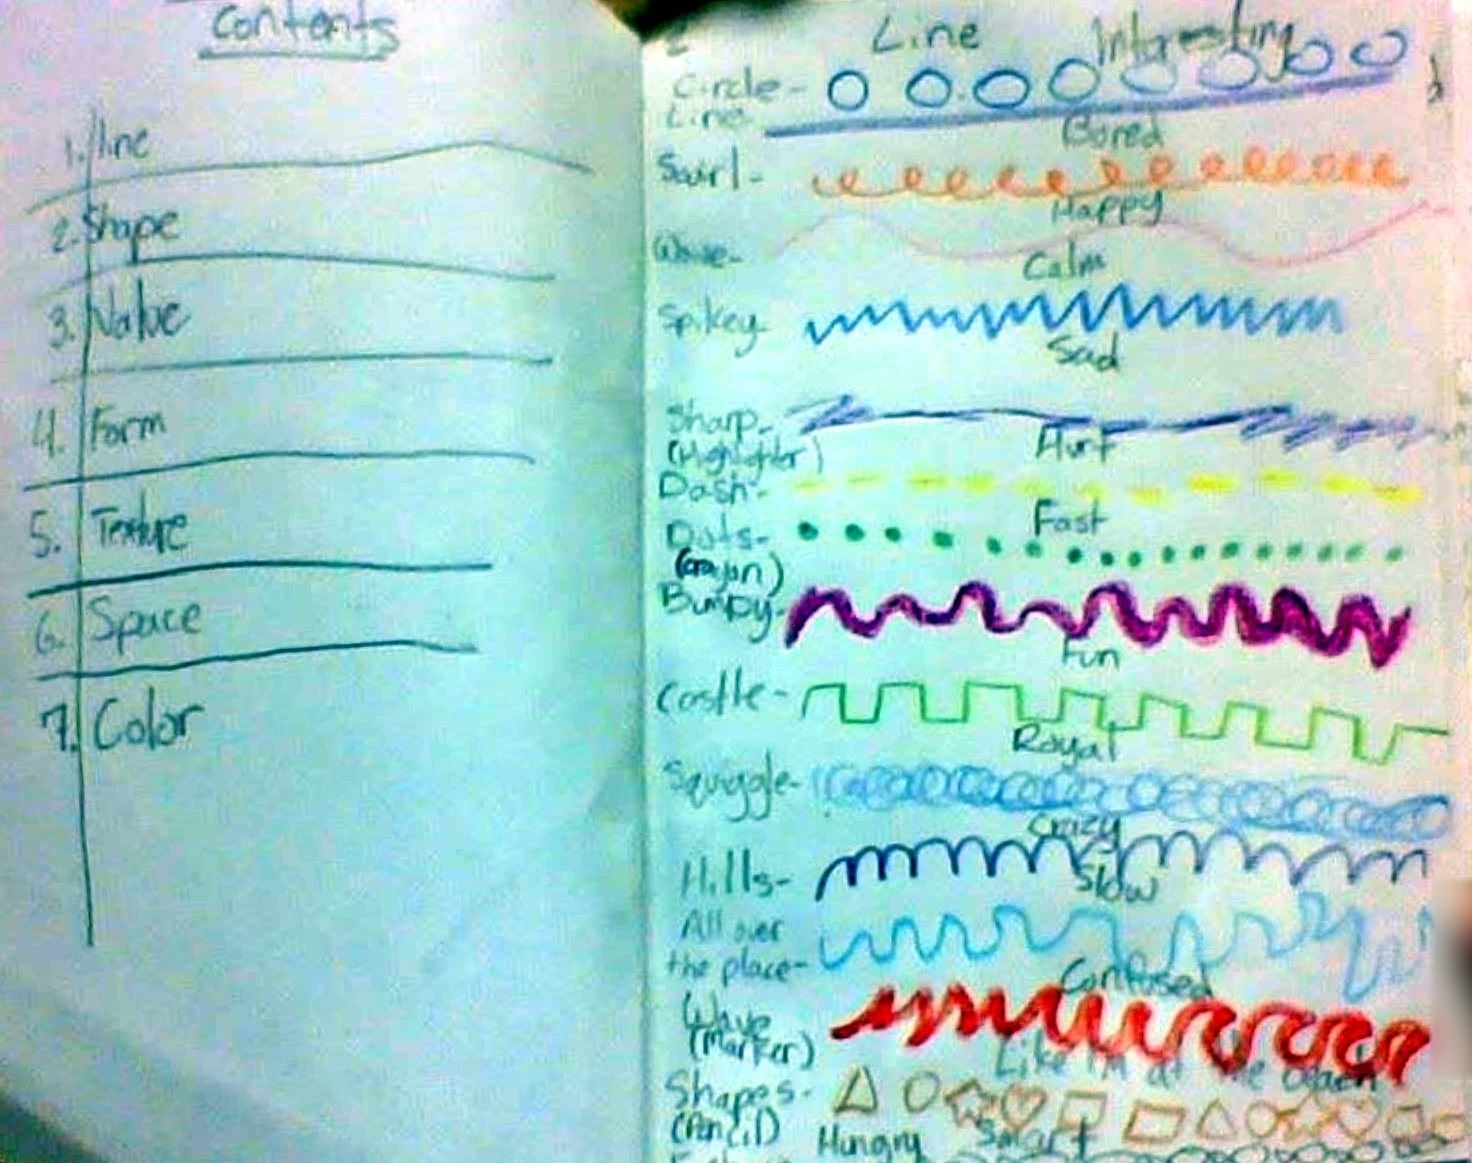 Contents
1. line
2. Shape
3. Value
4. Form
5. Texture
6. Space
7. Color
Line
Interesting
Circle-
Line
Bored
Swirl-
Happy
Wave-
Calm
Spikey-
Sad
Sharp-
Hurt
(Highlighter)
Dash-
Fast
Dots-
(crayon)
Bumpy-
Fun
Castle-
Royal
Squiggle-
Crazy
Hills-
Slow
All over
the place-
Confused
Wave
(Marker)
Like I'm at the
Shapes-
(Pencil)
Hungry Smart